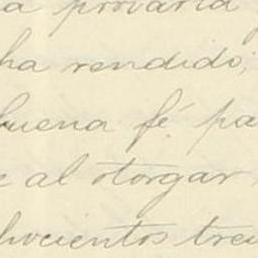 a provaria
ha rendido;
buena fé pa
e al otorgar
hocientos trei